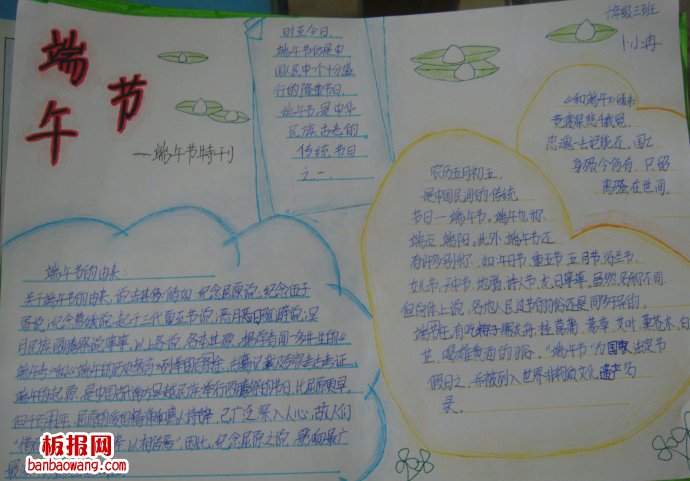 端午节
——端午节特刊
时至今日,
端午节仍是中
国人民中一个十分盛
行的隆重节日。
端午节是中华
民族古老的
传统节日
之一。
六年级三班
卜冉
《和端午》
竞渡深悲千载冤,
忠魂一去讵能还。国亡
身殒今何有,只留
离骚在世间。
农历五月初五,
是中国民间的传统
节日—端午节。端午也称
端五,端阳。此外,端午节还
有许多别称,如:午日节、重五节、五月节、浴兰节、
女儿节、天中节、地腊、诗人节、龙日等等。虽然名称不同
但总体上说,各地人民过节的习俗还是同多于异的。
端午节,有吃粽子,赛龙舟,挂菖蒲、蒿草、艾叶,薰苍术、白
芷,喝雄黄酒的习俗。"端午节"为国家法定节
假日之一,并被列入世界非物质文化遗产名
录。
端午节的由来
关于端午节的由来,说法甚多,诸如:纪念屈原说;纪念伍子
胥说;纪念曹娥说;起于三代夏至节说;恶月恶日驱避说;吴
月民族图腾祭说等等。以上各说,各本其源。据学者闻一多先生的《
端午考》和《端午的历史教育》列举的百余条古籍记载及专家考古考证,
端午的起源,是中国古代南方吴越民族举行图腾祭的节日,比屈原更早。
但千百年来,屈原的爱国精神和感人诗辞,已广泛深入人心,故人们
"惜而
以相传焉"因此,纪念屈原之说,影响最广
最
板报网
banbaowang.com